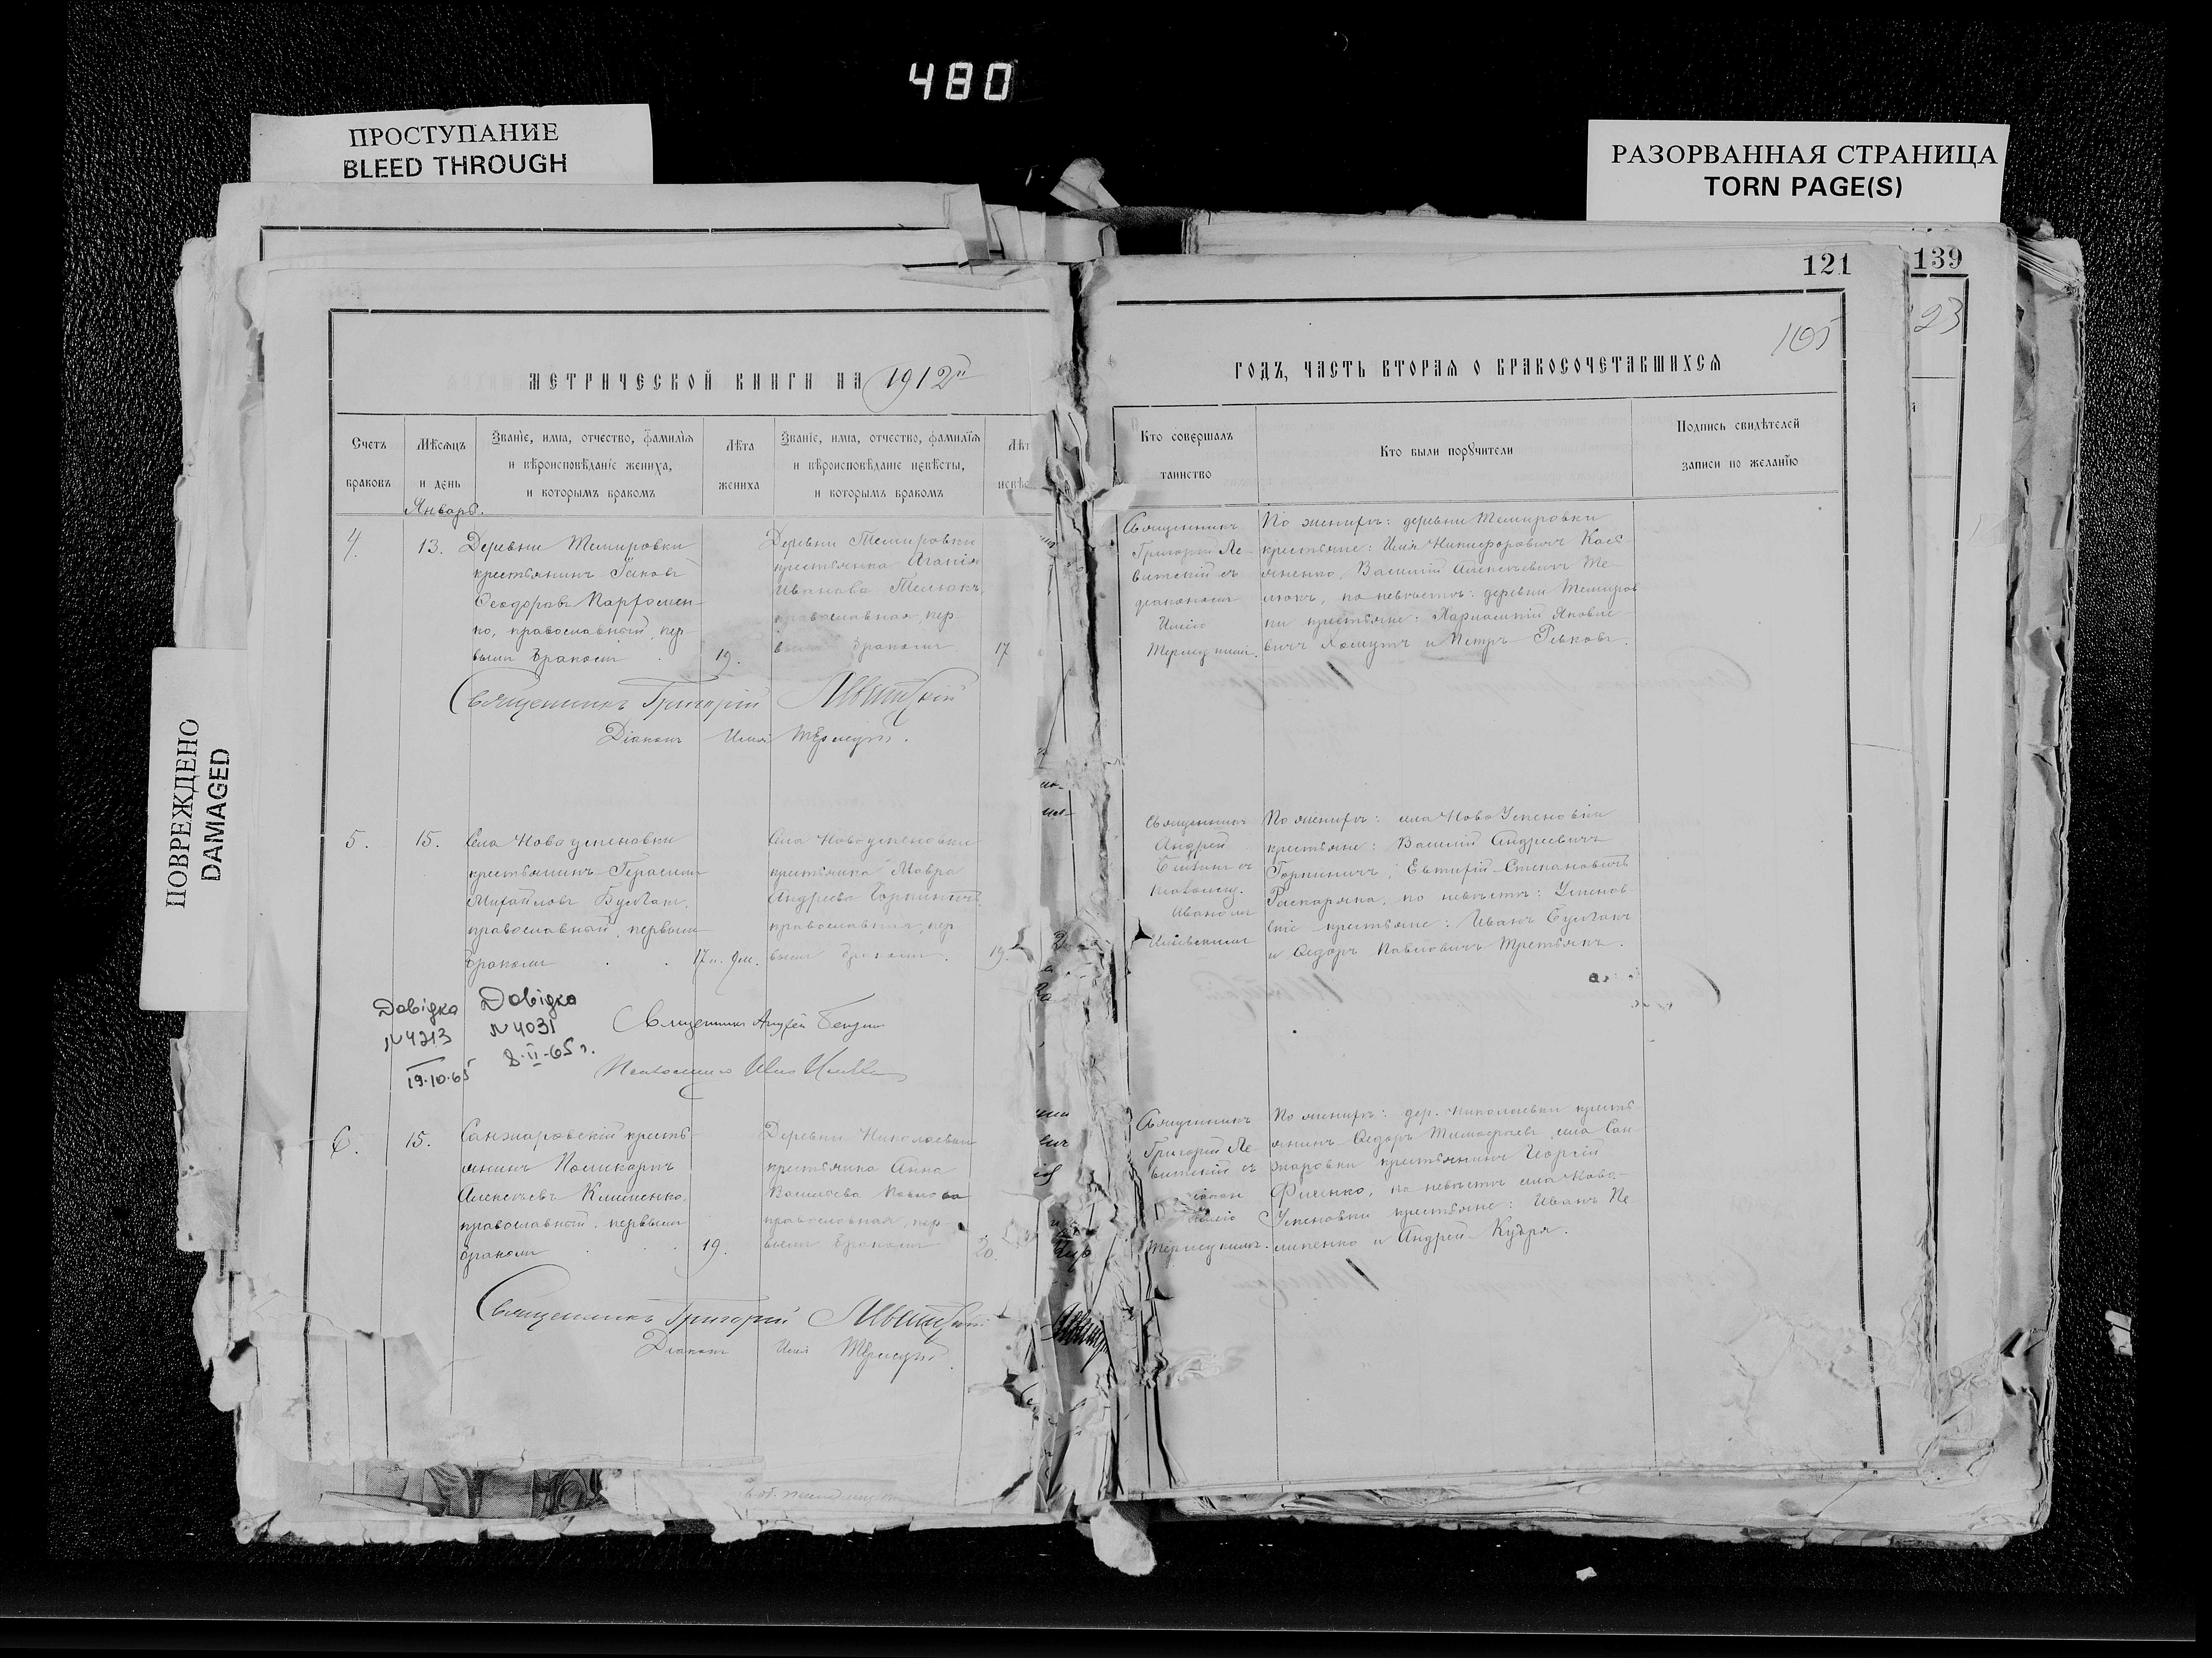 480
ПРОСТУПАНИЕ
BLEED THROUGH
РАЗОРВАННАЯ СТРАНИЦА
TORN PAGE(S)
ПОВРЕЖДЕНО
DAMAGED
121
139
105
23
МЕТРИЧЕСКОЙ КНИГИ НА 1912й
ГОДЪ, ЧАСТЬ ВТОРАЯ О БРАКОСОЧЕТАВШИХСЯ
Счетъ
браковъ
Мѣсяцъ
и день
Званіе, имя, отчество, фамилія
и вѣроисповѣданіе жениха,
и которымъ бракомъ
Лѣта
жениха
Званіе, имя, отчество, фамилія
и вѣроисповѣданіе невѣсты,
и которымъ бракомъ
Кто совершалъ
таинство
Кто были поручители
Подпись свидѣтелей
записи по желанію
Январь.
4.
13.
Деревни Темировки
крестьянинъ Іаковъ
Ѳеодоровъ Парфомен-
ко, православный, пер-
вымъ бракомъ
19.
Деревни Темировки
крестьянка Агапія
Иванова Телюкъ,
православная, пер
вымъ бракомъ
17
Священникъ
Григорій Ле-
витскій съ
діакономъ
Иліею
По женихѣ: деревни Темировки
крестьяне: Илія Никифоровичъ Кась-
яненко, Василій Алексѣевичъ Те-
люкъ, по невѣстѣ: деревни Темиров
ки крестьяне: Харлампій Яковле
вичъ Хомутъ и Петръ Рѣковъ.
Священникъ Григорій Левитскій
Діаконъ Илія
5.
15.
Села Новоуспеновки
крестьянинъ Герасимъ
Михайловъ Булахъ,
православный, первымъ
бракомъ
17 л. 9 м.
Села Новоуспеновки
крестьянка Мавра
Андреева
православная, пер
вымъ бракомъ.
19.
Священникъ
Андрей
съ
псаломщ.
Иваномъ
По женихѣ: села Ново Успеновки
крестьяне: Василій Андреевичъ
Евтифій Степановичъ
по невѣстѣ: Успенов
крестьяне: Иванъ Булахъ
и Ѳедоръ Павловичъ Третьякъ.
Довідка
N 4213
19.10.65
Довідка
N 4031
8-II-65 г.
Священникъ Андрей
6.
15.
Санжаровскій кресть-
янинъ Поликарпъ
Алексѣевъ Клименко,
православный, первымъ
бракомъ
19.
Деревни Николаевки
крестьянка Анна
Васильева Павлова
православная, пер-
вымъ бракомъ
20.
Священникъ
Григорій Ле
витскій съ
Иліею
По женихѣ: дер. Николаевки кресть
янинъ Ѳедоръ Тимофеевъ, села Сан
жаровки крестьянинъ Георгій
по невѣстѣ села Ново-
Успеновки крестьяне: Иванъ Пе
липенко и Андрей Кудря.
Священникъ Григорій Левитскій
Діаконъ Илія